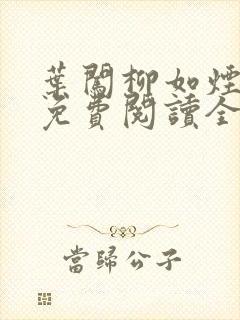 葉闖柳如煙
免費閱讀全
當歸公子